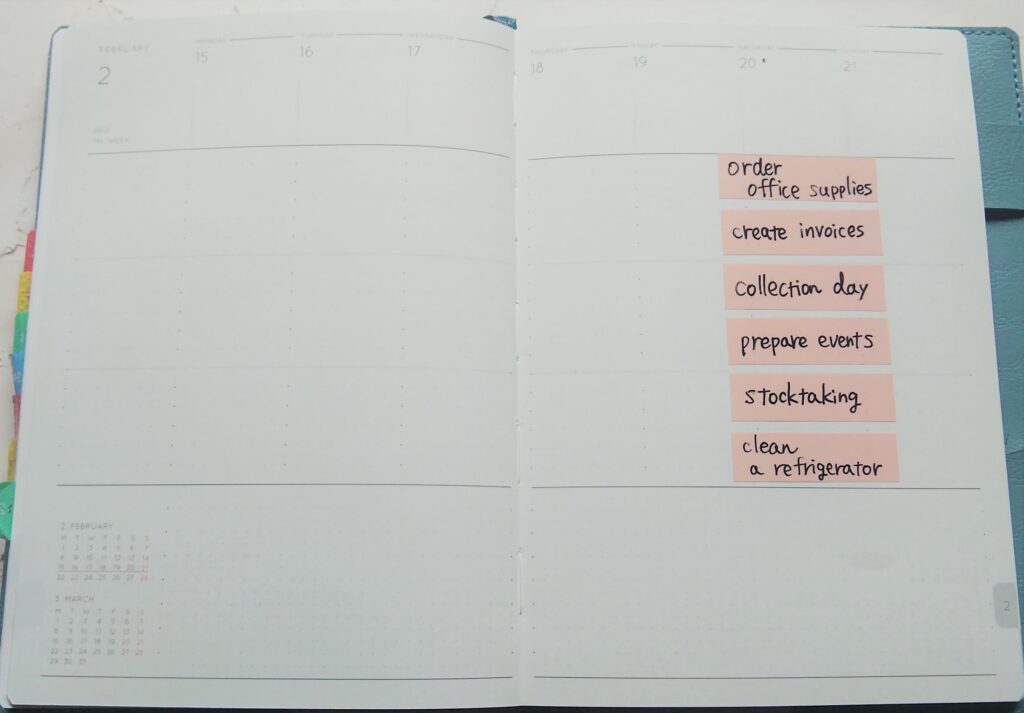 FEBRUARY
2
MONDAY
15
TUESDAY
16
WEDNESDAY
17
THURSDAY
18
FRIDAY
19
SATURDAY
20
SUNDAY
21
WEEK
order
office supplies
create invoices
collection day
prepare events
stocktaking
clean
a refrigerator
2 FEBRUARY
M T W T F S S
1 2 3 4 5 6 7
8 9 10 11 12 13 14
15 16 17 18 19 20 21
22 23 24 25 26 27 28
3 MARCH
M T W T F S S
1 2 3 4 5 6 7
8 9 10 11 12 13 14
15 16 17 18 19 20 21
22 23 24 25 26 27 28
29 30 31
2